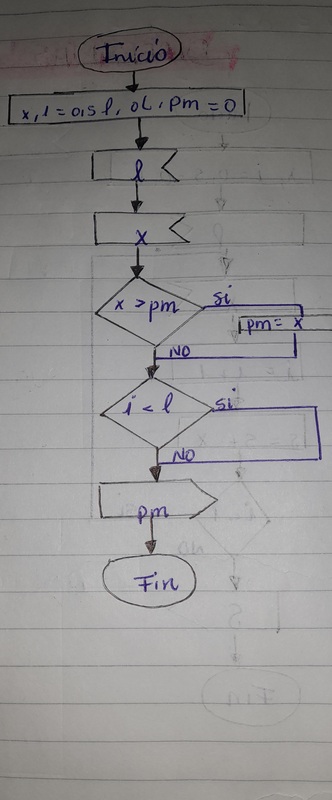 Inicio
x, i = 0, s l, ol, pm = 0
l
x
x > pm
si
pm = x
NO
i < l
si
NO
pm
Fin